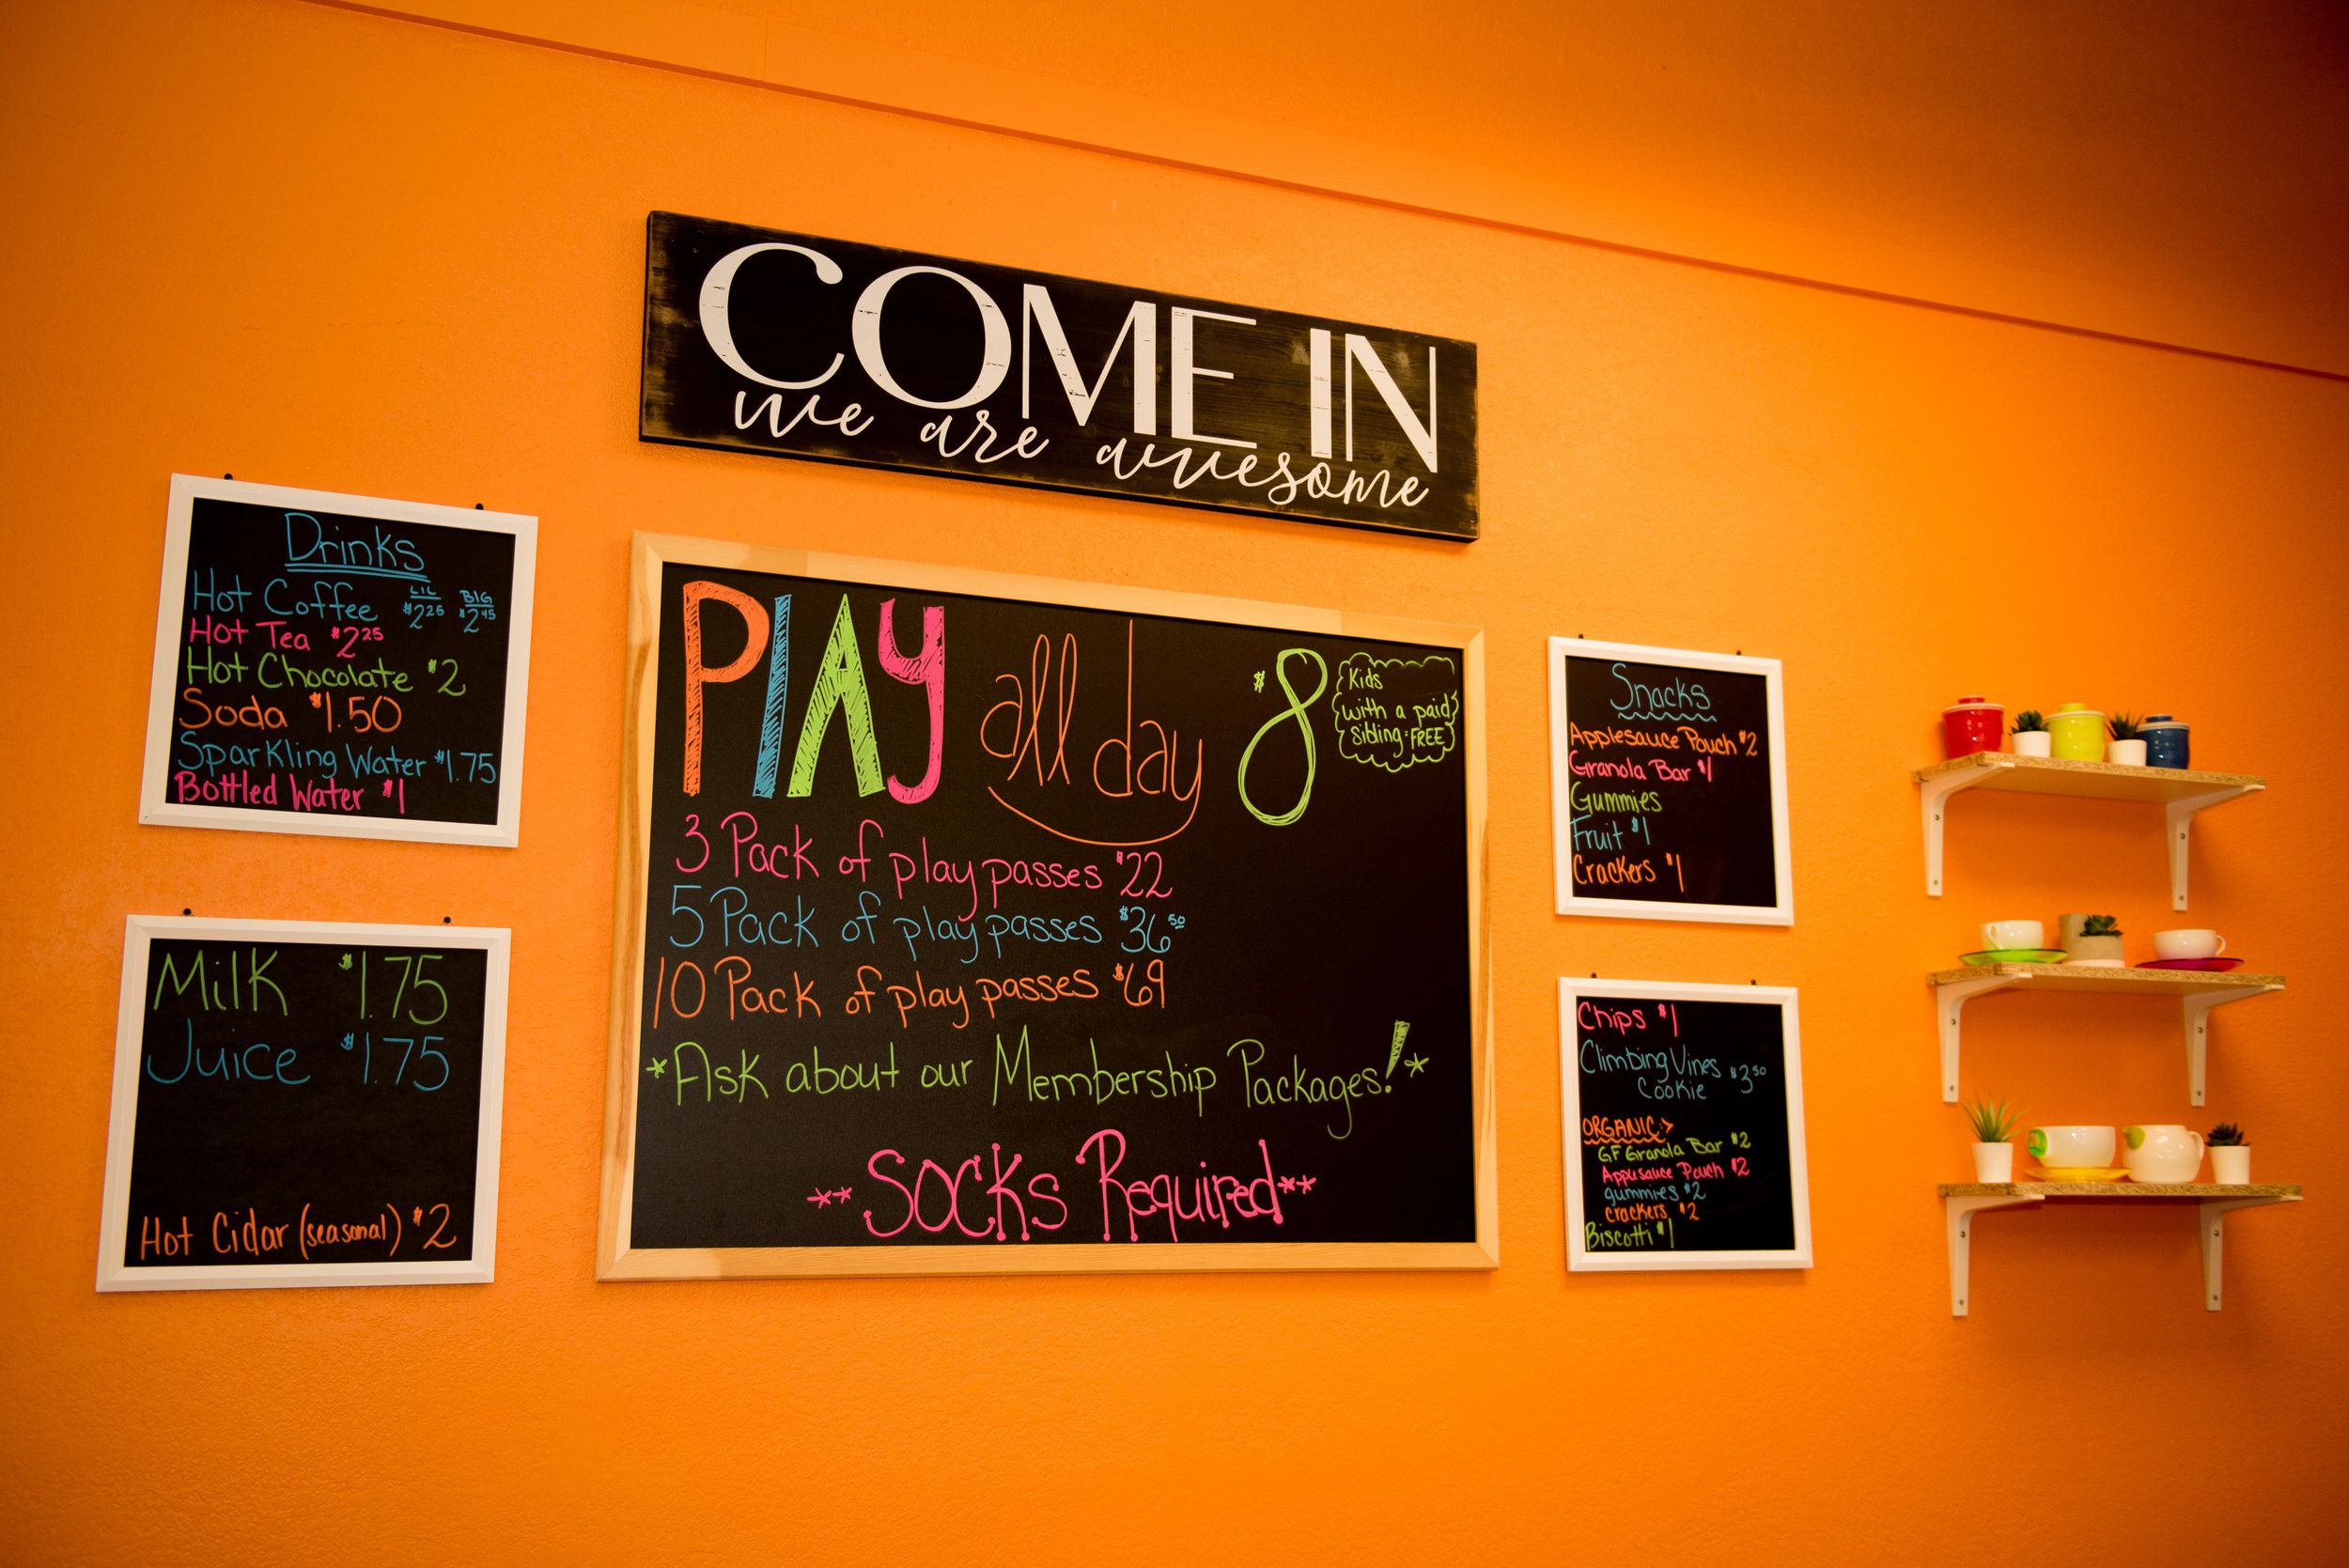 COME IN
we are awesome
Drinks
Hot Coffee LIL $2.25 BIG $2.45
Hot Tea $2.25
Hot Chocolate $2
Soda $1.50
Sparkling Water $1.75
Bottled Water $1
Milk $1.75
Juice $1.75
Hot Cidar (seasonal) $2
PLAY all day $8
Kids
with a paid
sibling FREE
3 Pack of play passes $22
5 Pack of play passes $36.50
10 Pack of play passes $69
*Ask about our Membership Packages!*
**SOCKS Required**
Snacks
Applesauce Pouch $2
Granola Bar $1
Gummies
Fruit $1
Crackers $1
Chips $1
Climbing Vines
Cookie $3.50
ORGANIC:>
GF Granola Bar $2
Applesauce Pouch $2
gummies $2
crackers $2
Biscotti $1